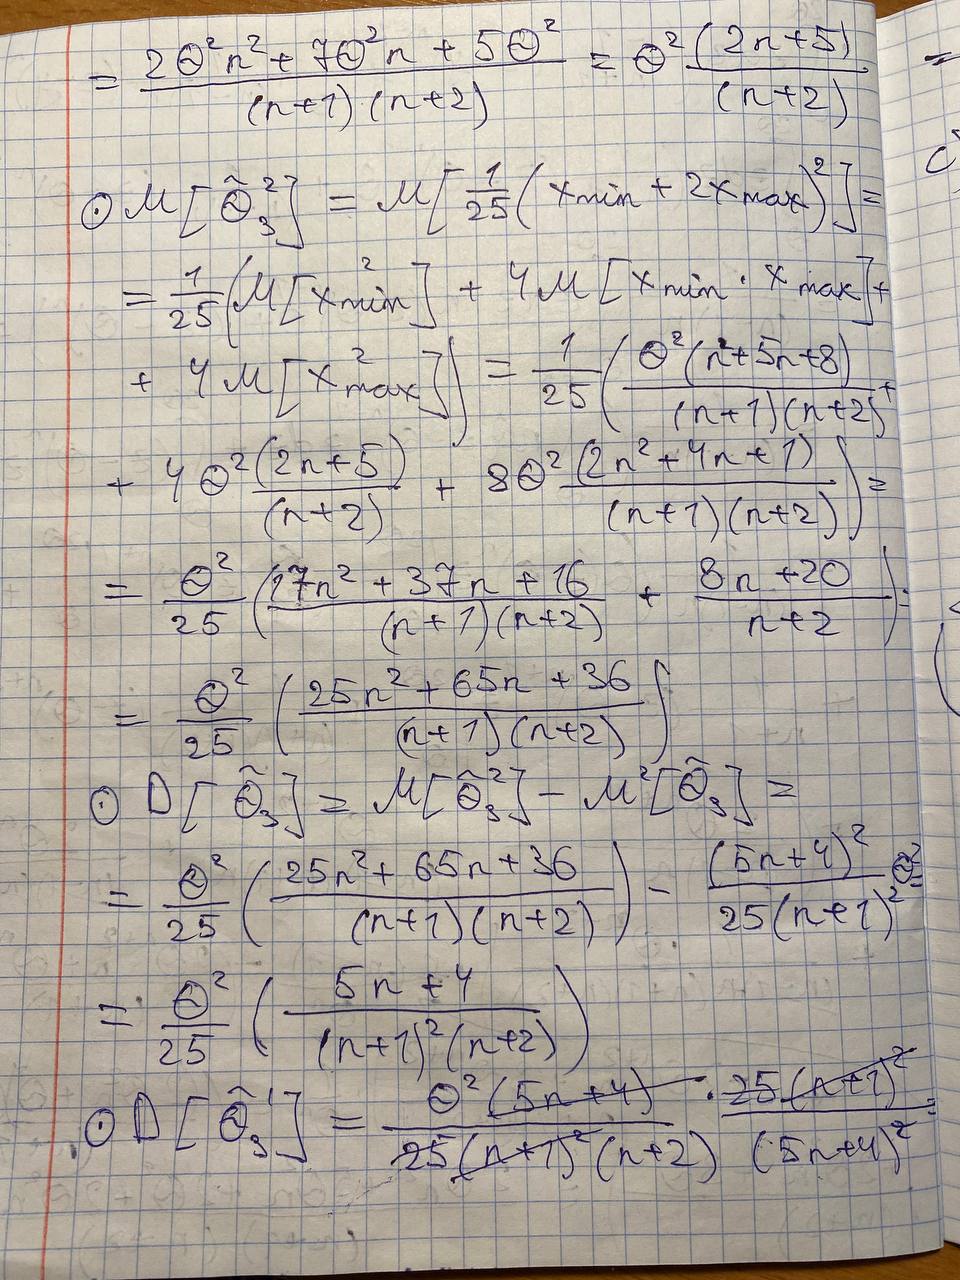 = (2Θ²n² + 7Θ²n + 5Θ²)/((n+1)(n+2)) = Θ² (2n+5)/(n+2)
⊙ M[Θ̃₃²] = M[1/25 (x min + 2x max)²] =
= 1/25 (M[x²min] + 4M[x min · x max] +
+ 4M[x²max]) = 1/25 (Θ²(n²+5n+8)/((n+1)(n+2)) +
+ 4Θ² (2n+5)/(n+2) + 8Θ² (2n²+4n+1)/((n+1)(n+2))) =
= Θ²/25 ((17n² + 37n + 16)/((n+1)(n+2)) + (8n+20)/(n+2)) =
= Θ²/25 ((25n² + 65n + 36)/((n+1)(n+2)))
⊙ D[Θ̃₃] = M[Θ̃₃²] - M²[Θ̃₃] =
= Θ²/25 ((25n² + 65n + 36)/((n+1)(n+2))) - (5n+4)²/(25(n+1)²) Θ² =
= Θ²/25 ((5n+4)/((n+1)²(n+2)))
⊙ D[Θ̃₃'] = Θ²(5n+4)/(25(n+1)²(n+2)) · 25(n+1)²/(5n+4)² =